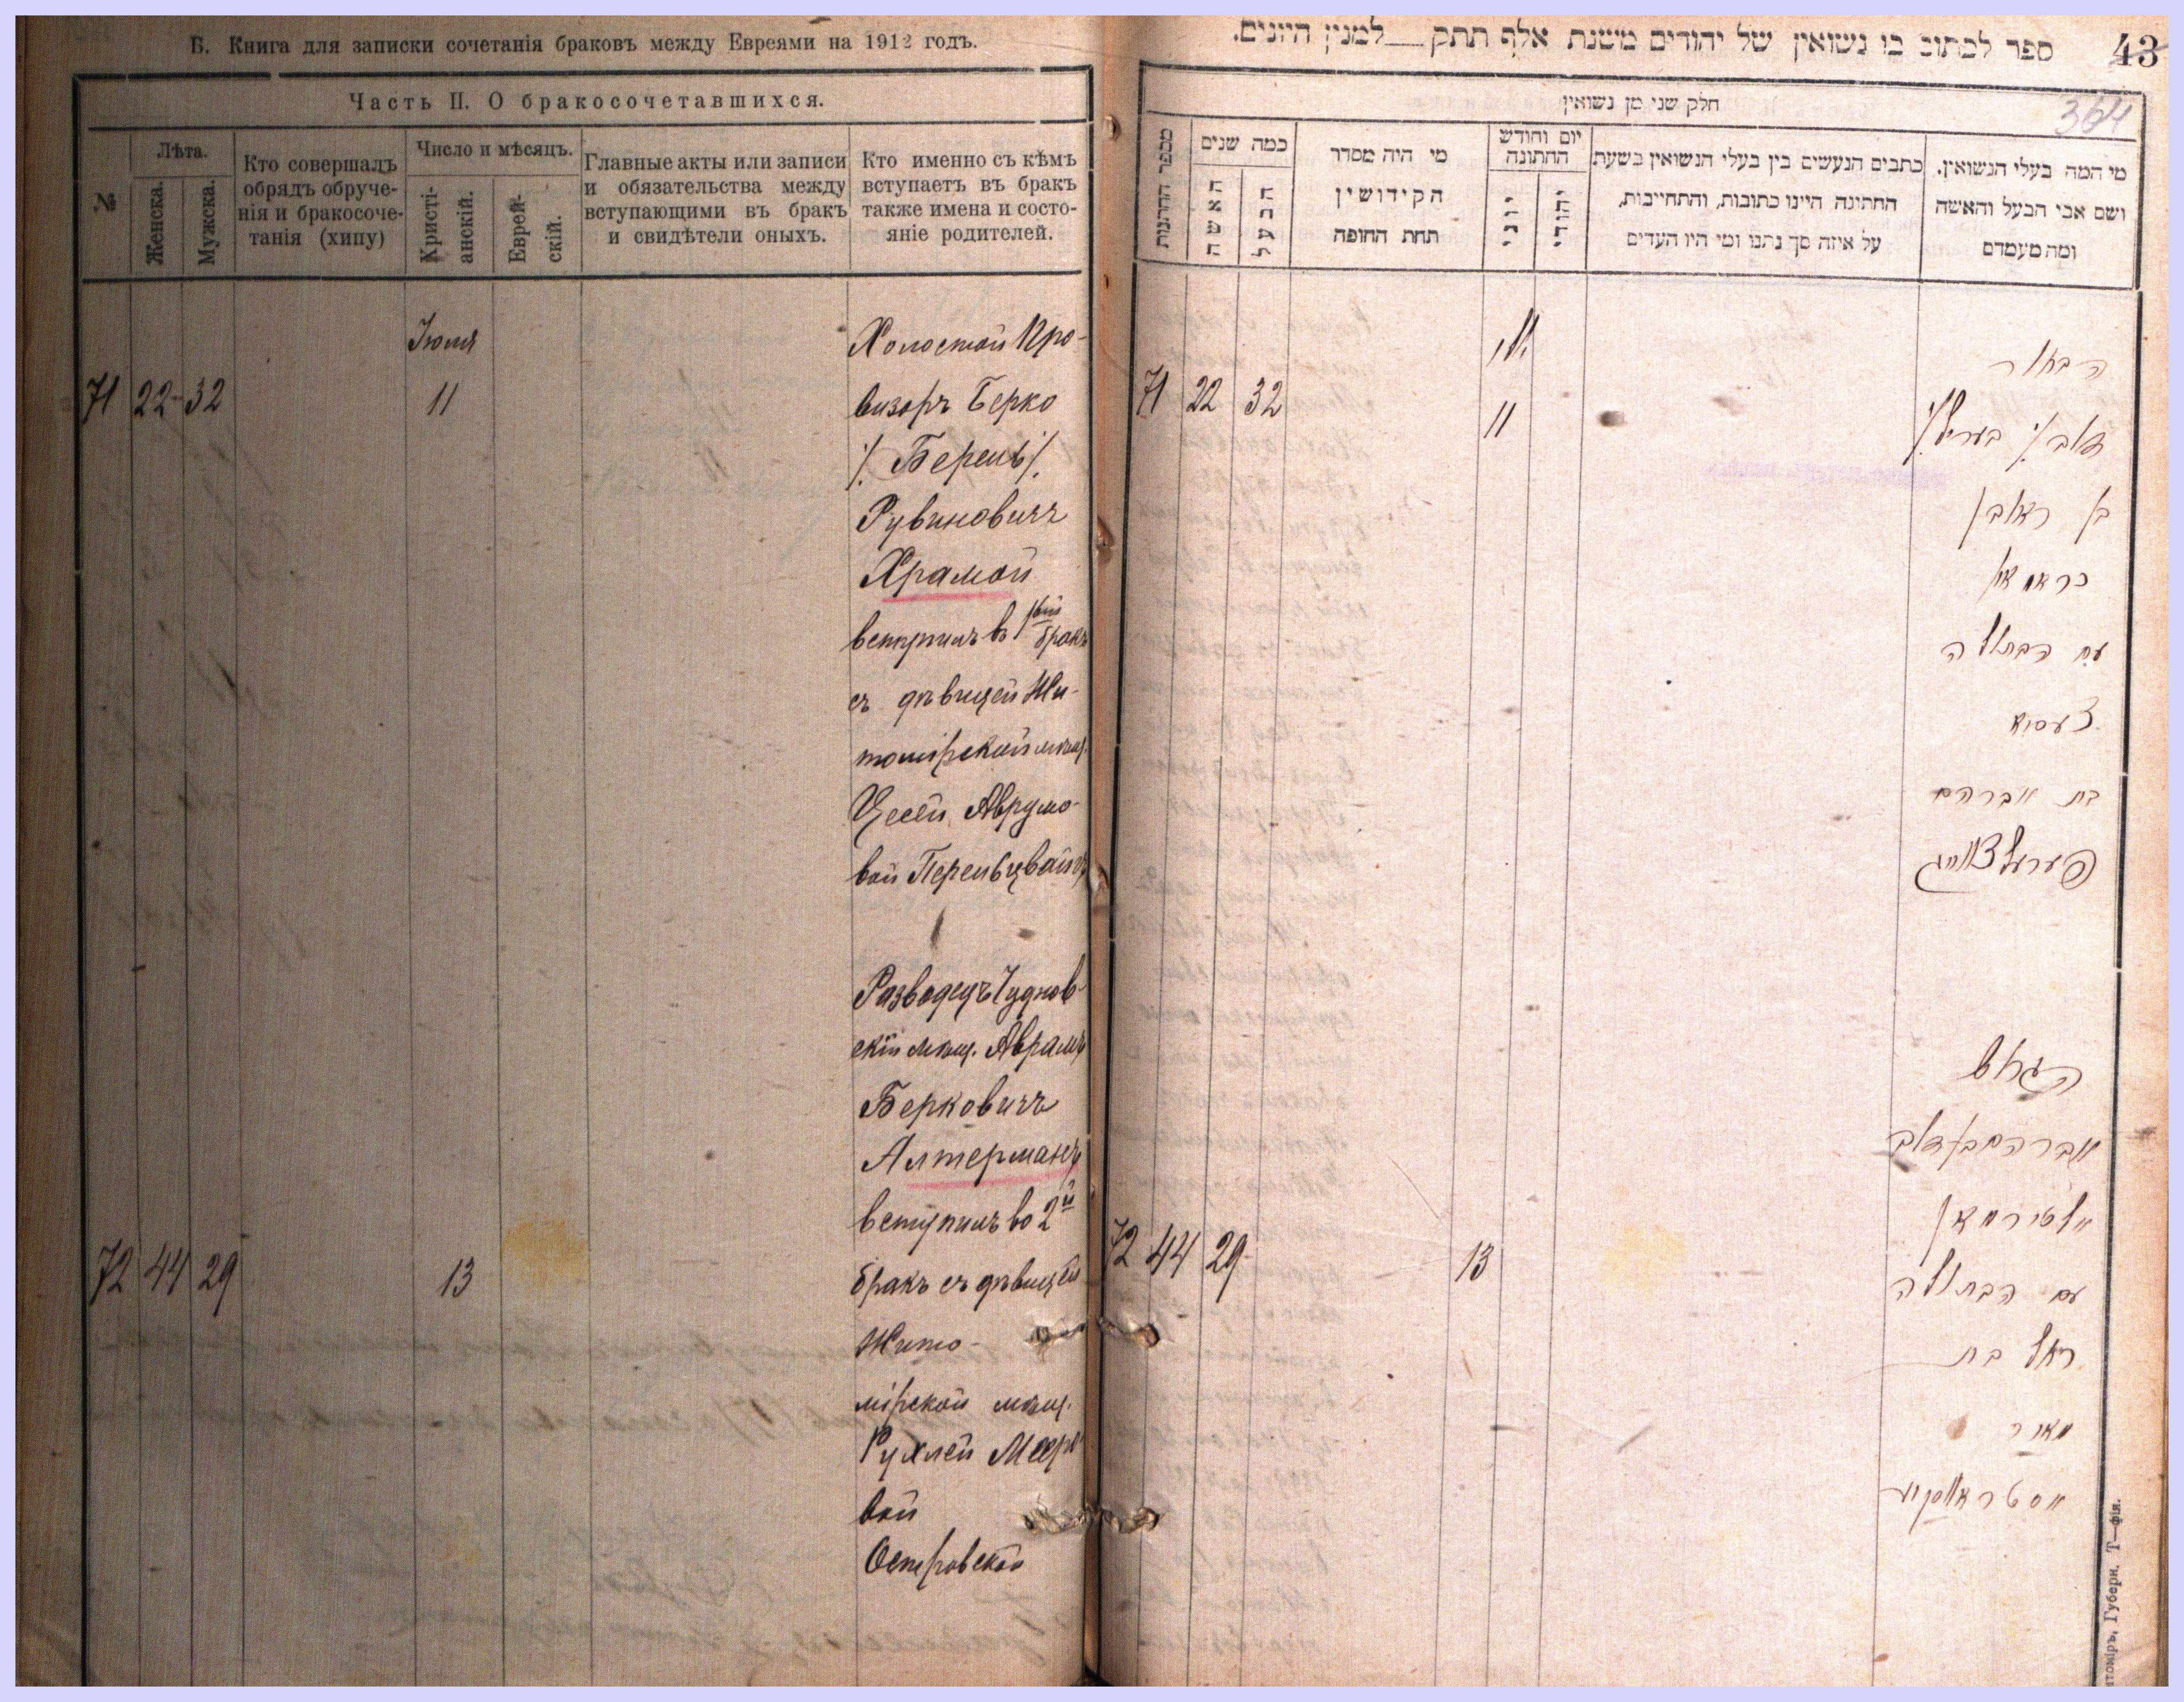 Б. Книга для записки сочетанія браковъ между Евреями на 1912 годъ.
Часть II. О бракосочетавшихся.
№
Лѣта.
Женска.
Мужска.
Кто совершалъ
обрядъ обруче-
нія и бракосоче-
танія (хипу)
Число и мѣсяцъ.
Христі-
анскій.
Еврей-
скій.
Главные акты или записи
и обязательства между
вступающими въ бракъ
и свидѣтели оныхъ.
Кто именно съ кѣмъ
вступаетъ въ бракъ
также имена и состо-
яніе родителей.
Іюля
71 22 32 11
Холостой Про-
визоръ Берко
/Берель/
Рувиновичъ
Храмой
вступилъ въ 1вый бракъ
съ дѣвицей Жи-
томірской мѣщ.
Цесей Аврумо-
вой Перельцвайгъ
Разведецъ Чуднов-
скій мѣщ. Аврамъ
Берковичъ
Алтерманъ
вступилъ во 2й
72 44 29 13
бракъ съ дѣвицей
Жито-
мірской мѣщ.
Рухлей Мееро
вой
Островской
ספר לכתוב בו נשואין של יהודים משנת אלף תתק למנין היונים.
43
364
חלק שני מן נשואין
מספר החתנות
כמה שנים
האשה
הבעל
מי היה מסדר
הקידושין
תחת החופה
יום וחודש
החתונה
יוני
יהודי
כתבים הנעשים בין בעלי הנשואין בשעת
החתונה היינו כתובות, והתחייבות,
על איזה סך נתנו ומי היו העדים
מי המה בעלי הנשואין.
ושם אבי הבעל והאשה
ומה מעמדם
71 22 32 11
הבחור
דוב /בעריל/
בן ראובן
כראמאי
עם הבתולה
צעסיא
בת אברהם
פערעלצווייג
הגרוש
אברהם בן דוב
אלטירמאן
72 44 29 13
עם הבתולה
רחל בת
מאיר
אסטראווסקיע
Губерн. Т—фія.